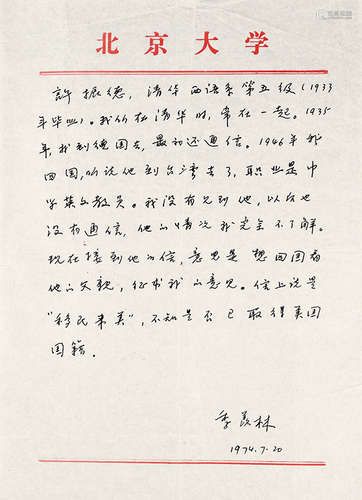 北京大学
許振德，清华西语系第五级(1933
年毕业)。我们在清华时，常在一起。1935
年，我到德国去，最初还通信。1946年我
回国，听说他到台湾去了，职业是中
学英文教员。我没有见到他，以后也
没有通信，他的情况我完全不了解。
现在接到他的信，意思是想回国看
他的父親，征求我的意见。信上说是
“移民来美”，不知是否已取得美国
国籍。
季羡林
1974.7.20